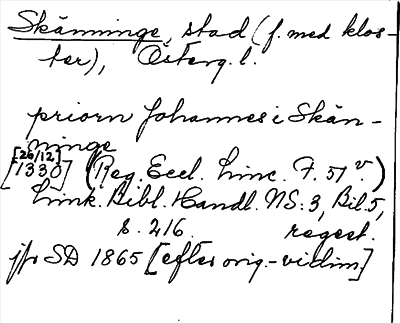 Skänninge, stad (f. med klos-
ter), Österg. l.
priorn Johannes i Skän-
ninge
[26/12]
[1330] (Reg. Eccl. Linc. F. 51 v.)
Link. Bibl. Handl. NS: 3, Bil. 5,
s. 216. regest.
jfr SD 1865 [efter orig.-vidim.]